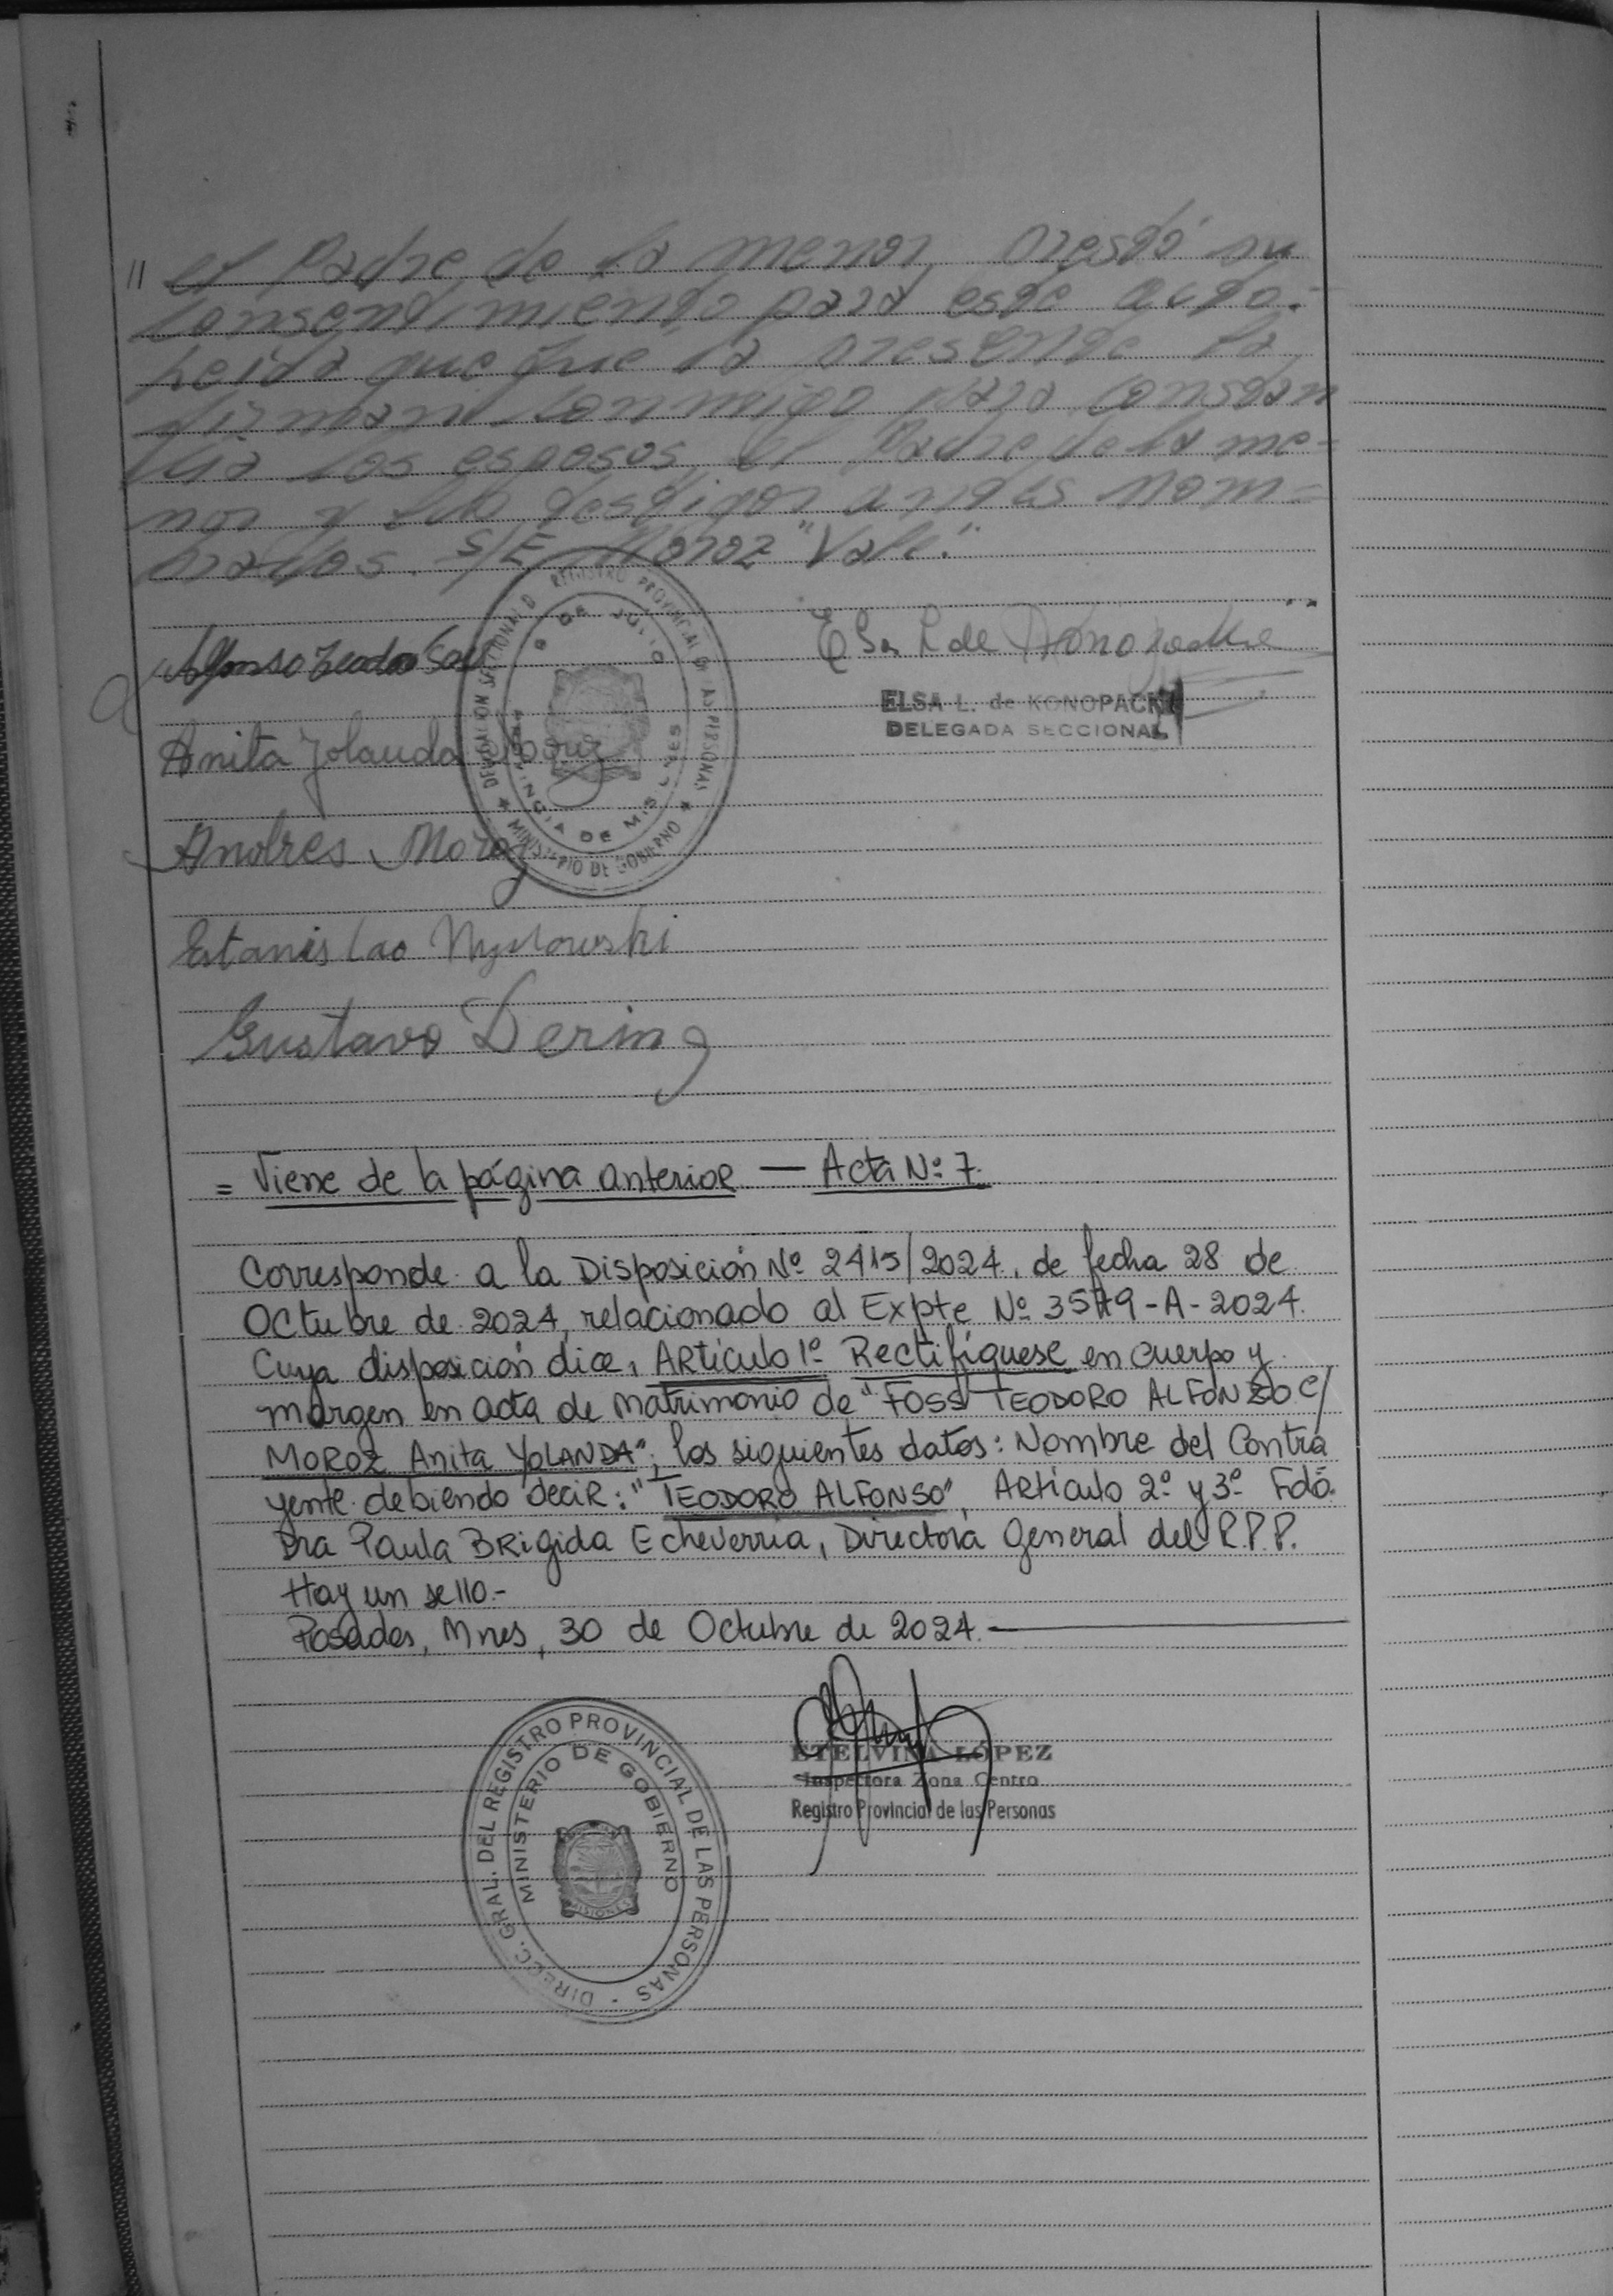 // el Padre de la menor prestó su
consentimiento para este acto.-
Leida que fue la presente la
firman conmigo para constan
cia los esposos, el Padre de la me-
nor y los testigos antes nom-
brados. S/E. Moroz "Vale."
Alfonso Teodoro
Elsa L de Konopacki
ELSA L. de KONOPACKI
DELEGADA SECCIONAL
REGISTRO PROVINCIAL DE LAS PERSONAS
DELEGACION SECCIONAL
9 DE JULIO
PROVINCIA DE MISIONES
★ MINISTERIO DE GOBIERNO ★
Anita Yolanda Moroz
Andres Moroz
Estanislao
Gustavo Dering
= Viene de la página anterior — Acta Nº 7.
Corresponde a la Disposición Nº 2415/2024, de fecha 28 de
Octubre de 2024, relacionado al Expte Nº 3579-A-2024.
Cuya disposición dice, Artículo 1º Rectifíquese en cuerpo y
margen en acta de Matrimonio de "FOSS TEODORO ALFONZO c/
MOROZ Anita YOLANDA"; los siguientes datos: Nombre del Contra
yente debiendo decir: "TEODORO ALFONSO", Artículo 2º y 3º Fdo.
Dra Paula Brigida Echeverria, Directora General del R.P.P.
Hay un sello.-
Posadas, Mnes, 30 de Octubre de 2024.
ETELVINA LÓPEZ
Inspectora Zona Centro
Registro Provincial de las Personas
DIRECC. GRAL. DEL REGISTRO PROVINCIAL DE LAS PERSONAS -
MINISTERIO DE GOBIERNO
MISIONES